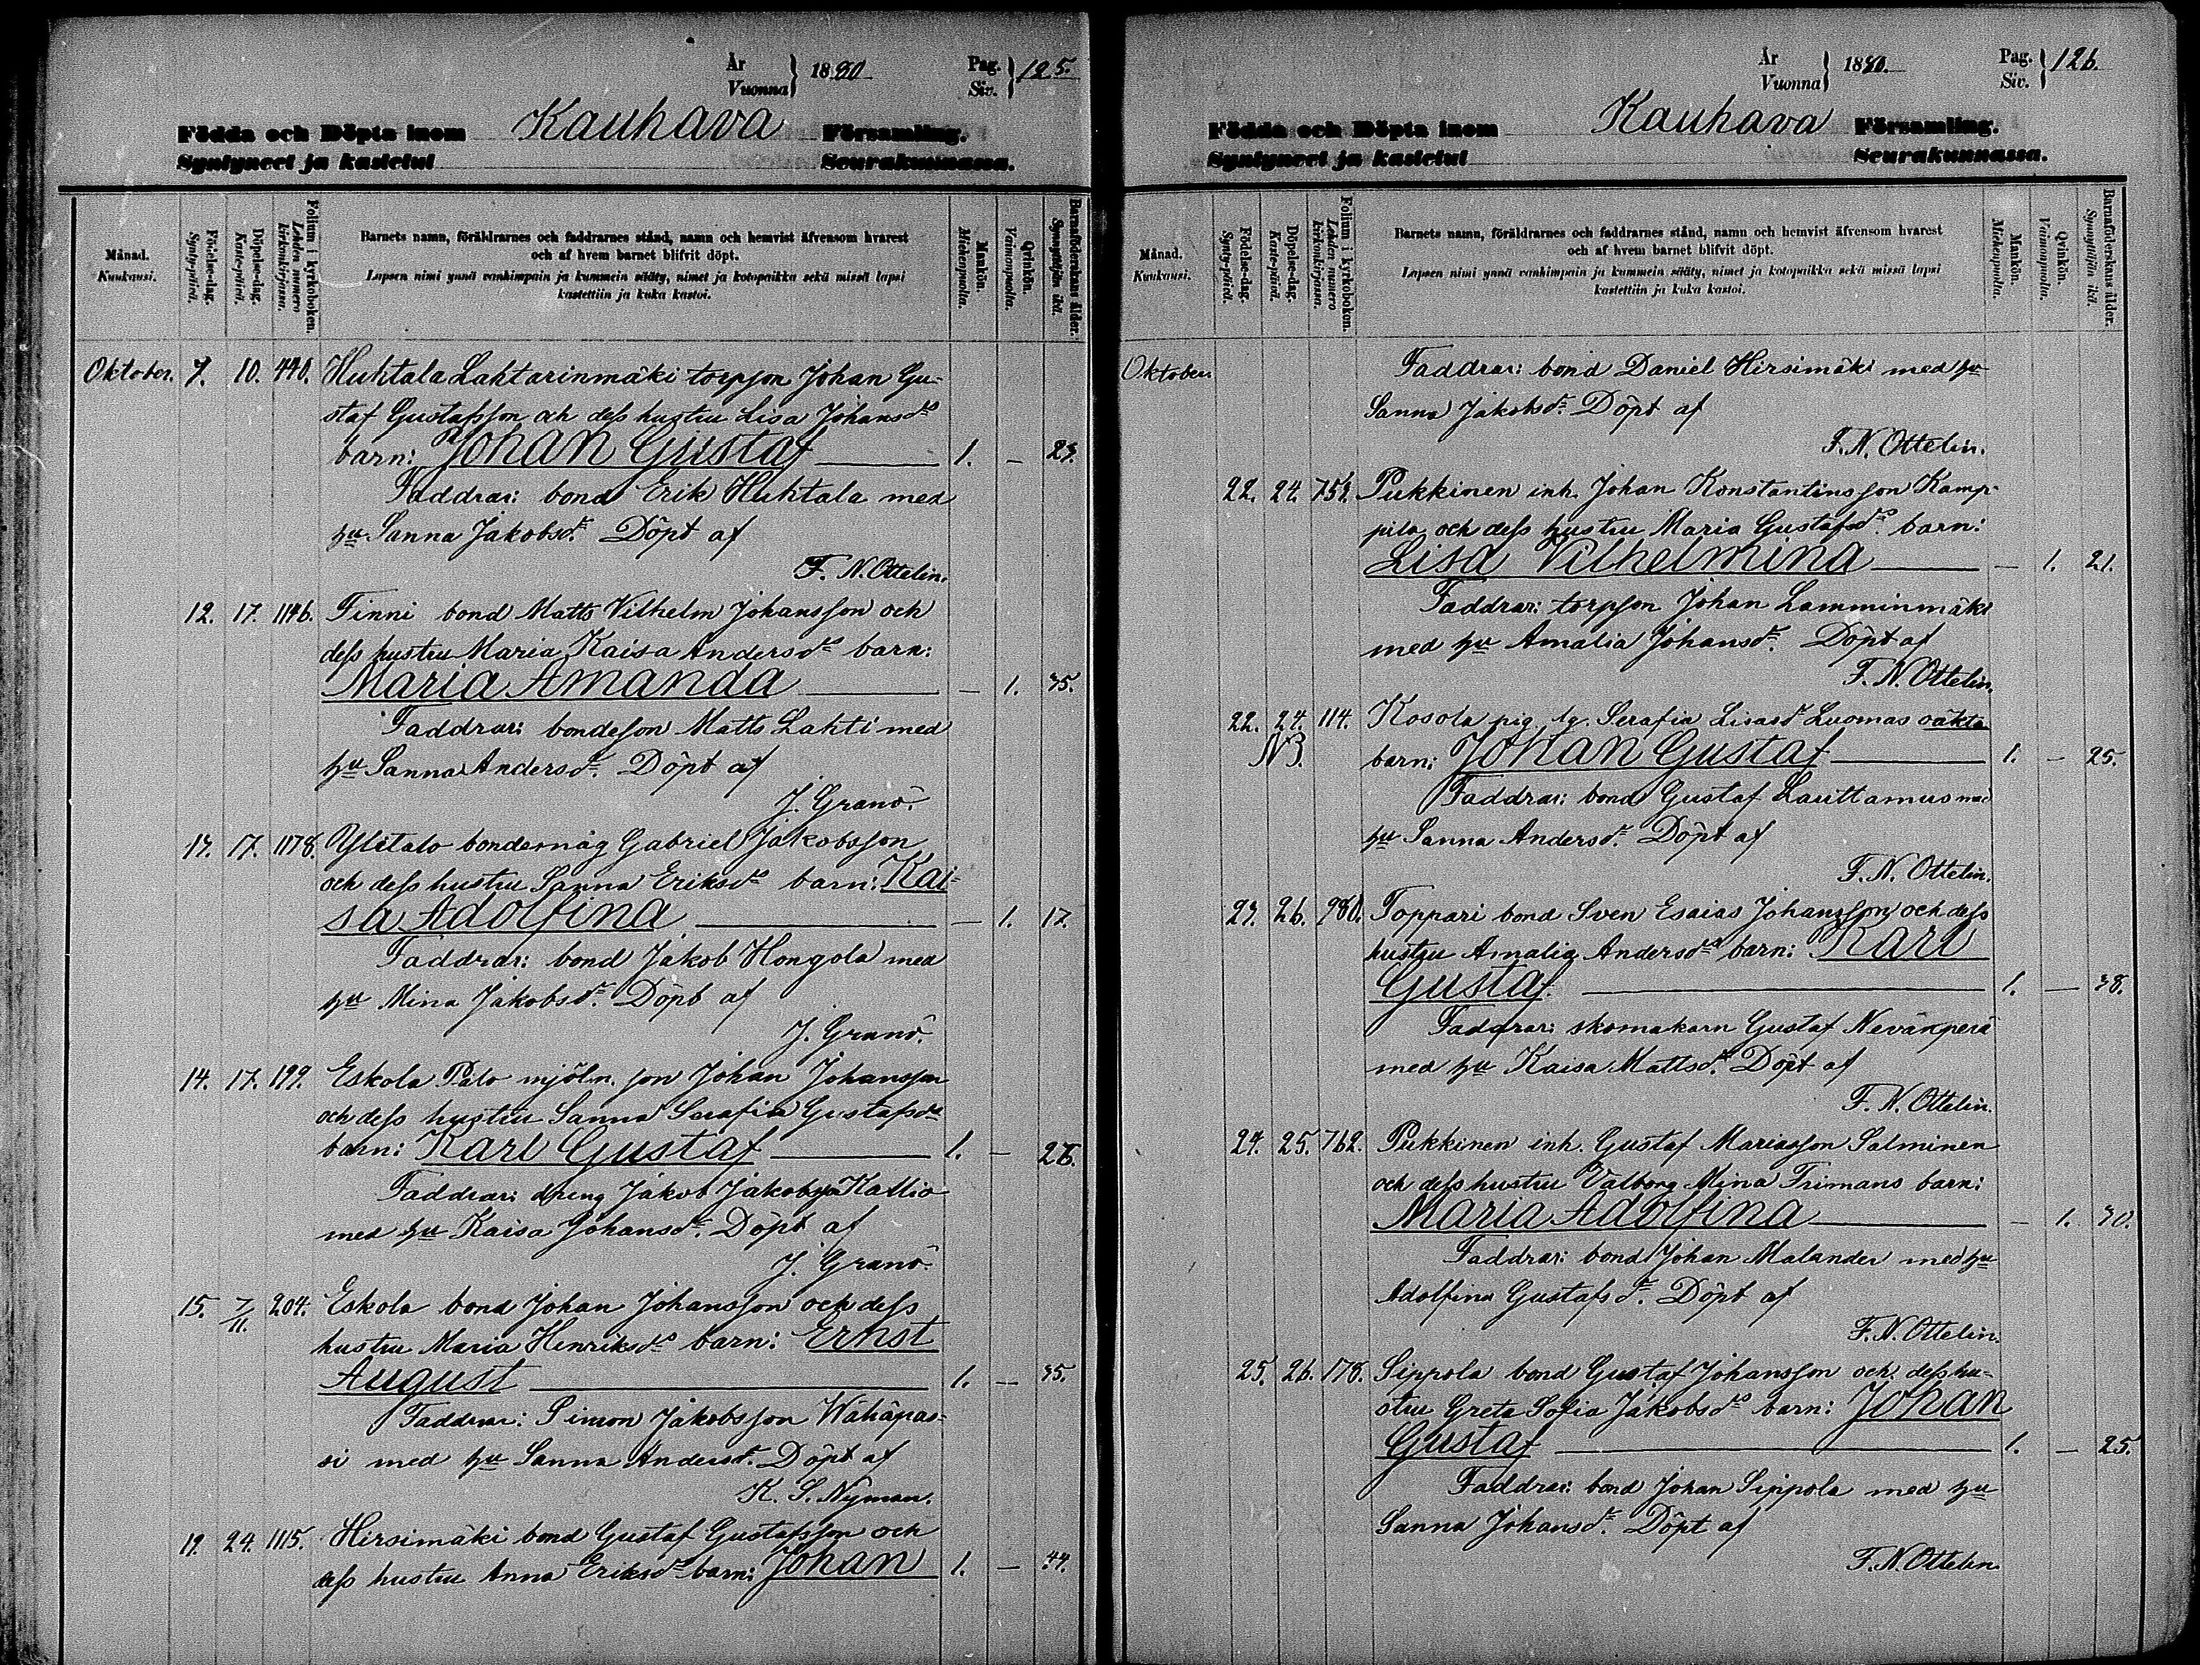 År
Vuonna } 1880
Pag.
Siv. } 125.
Födda och Döpta inom Kauhava Församling.
Syntyneet ja kastetut Seurakunnassa.
Månad.
Kuukausi.
Födelse-dag.
Synty-päivä.
Döpelse-dag.
Kaste-päivä.
Folium i kyrkoboken.
Lehden numero kirkonkirjassa.
Barnets namn, föräldrarnes och faddrarnes stånd, namn och hemvist äfvensom hvarest
och af hvem barnet blifvit döpt.
Lapsen nimi ynnä vanhimpain ja kummein sääty, nimet ja kotopaikka sekä missä lapsi
kastettiin ja kuka kastoi.
Mankön.
Miehenpuolta.
Qvinkön.
Vaimonpuolta.
Barnaföderskans ålder.
Synnyttäjän ikä.
Oktober. 7. 10. 440. Huhtala Lahtarinmäki torpson Johan Gu-
staf Gustafsson och dess hustru Lisa Johansdr
barn: Johan Gustaf 1. — 23.
Faddrar: bond Erik Huhtala med
hu Sanna Jakobsdr. Döpt af
F. N. Ottelin.
12. 17. 1146. Finni bond Matts Vilhelm Johansson och
dess hustru Maria Kaisa Andersdr barn:
Maria Amanda — 1. 35.
Faddrar: bondeson Matts Lahti med
hu Sanna Andersdr. Döpt af
J. Granö.
17. 1178. Ylitalo bondemåg Gabriel Jakobsson
och dess hustru Sanna Eriksdr barn: Kai-
sa Adolfina — 1. 17.
Faddrar: bond Jakob Hongola med
hu Mina Jakobsdr. Döpt af
J. Granö.
14. 17. 199. Eskola Palo mjöln. son Johan Johansson
och dess hustru Sanna Serafia Gustafsdr
barn: Karl Gustaf 1. — 26.
Faddrar: dreng Jakob Jakobsson Kallio
med hu Kaisa Johansdr. Döpt af
J. Granö.
15. 7/11. 204. Eskola bond Johan Johansson och dess
hustru Maria Henriksdr barn: Ernst
August 1. — 35.
Faddrar: Simon Jakobsson Wähäpas-
si med hu Sanna Andersdr. Döpt af
K. S. Nyman.
19. 24. 1115. Hirsimäki bond Gustaf Gustafsson och
dess hustru Anna Eriksdr barn: Johan 1. — 44.
År
Vuonna } 1880.
Pag.
Siv. } 126.
Födda och Döpta inom Kauhava Församling.
Syntyneet ja kastetut Seurakunnassa.
Månad.
Kuukausi.
Födelse-dag.
Synty-päivä.
Döpelse-dag.
Kaste-päivä.
Folium i kyrkoboken.
Lehden numero kirkonkirjassa.
Barnets namn, föräldrarnes och faddrarnes stånd, namn och hemvist äfvensom hvarest
och af hvem barnet blifvit döpt.
Lapsen nimi ynnä vanhimpain ja kummein sääty, nimet ja kotopaikka sekä missä lapsi
kastettiin ja kuka kastoi.
Mankön.
Miehenpuolta.
Qvinkön.
Vaimonpuolta.
Barnaföderskans ålder.
Synnyttäjän ikä.
Oktober. Faddrar: bond Daniel Hirsimäki med hu
Sanna Jakobsdr. Döpt af
F. N. Ottelin.
22. 24. 751. Pukkinen inh. Johan Konstantinsson Kamp-
pila och dess hustru Maria Gustafsdr. barn:
Lisa Vilhelmina — 1. 21.
Faddrar: torpson Johan Lamminmäki
med hu Amalia Johansdr. Döpt af
F. N. Ottelin.
22. 24. 114. Kosola pig. Serafia Lisasdr Luomas oäkta
NB. barn: Johan Gustaf 1. — 25.
Faddrar: bond Gustaf Lauttamus med
hu Sanna Andersdr. Döpt af
F. N. Ottelin.
23. 26. 980. Toppari bond Sven Esaias Johansson och dess
hustru Amalia Andersdr barn: Karl
Gustaf. 1. — 38.
Faddrar: skomakarn Gustaf Nevänperä
med hu Kaisa Mattsdr. Döpt af
F. N. Ottelin.
24. 25. 762. Pukkinen inh. Gustaf Mariasson Salminen
och dess hustru Valborg Mina Frimans barn:
Maria Adolfina — 1. 30.
Faddrar: bond Johan Malander med hu
Adolfina Gustafsdr. Döpt af
F. N. Ottelin.
25. 26. 178. Sippola bond Gustaf Johansson och dess hu-
stru Greta Sofia Jakobsdr barn: Johan
Gustaf 1. — 25.
Faddrar: bond Johan Sippola med hu
Sanna Johansdr. Döpt af
F. N. Ottelin.